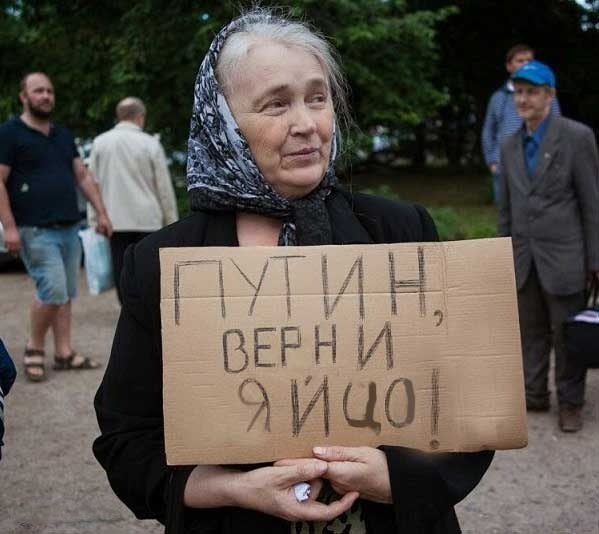 ПУТИН,
ВЕРНИ
ЯЙЦО!